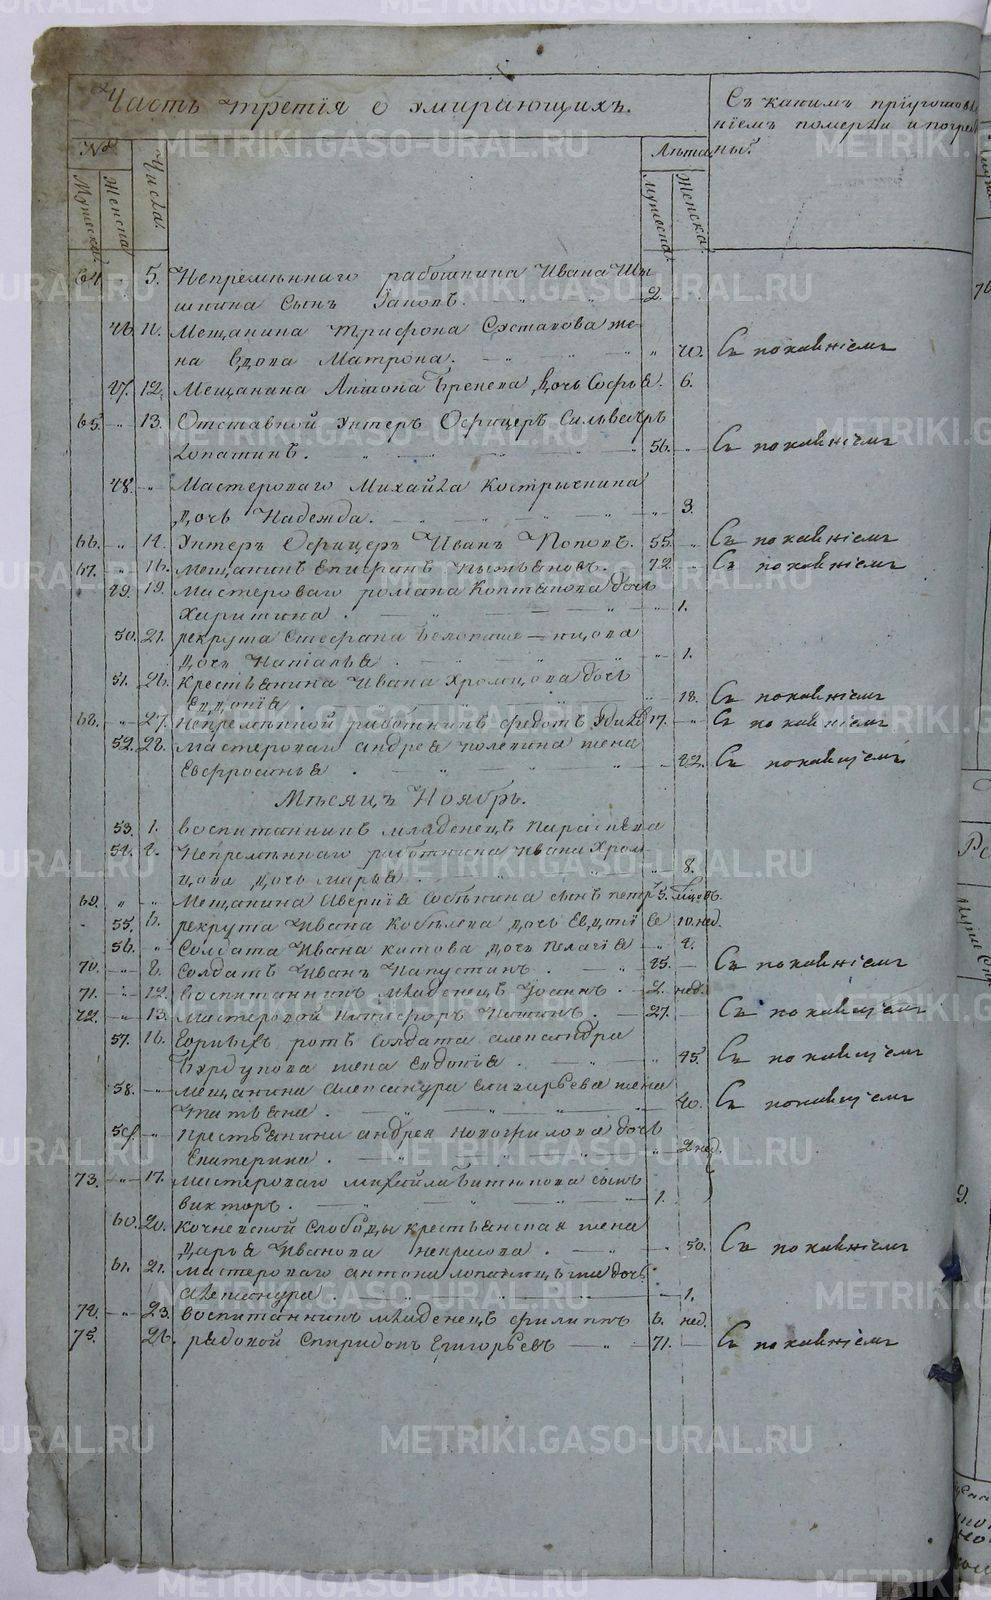 Часть третія о умирающихъ.
Съ какимъ пріуготовле
ніемъ померли и погребе
ны?
№
Числа.
Лѣта
Мужеска.
Женска
Мужеска
Женска.
64. 5. Непремѣннаго работника Ивана Шы
шкина Сынъ Іаковъ. 2.
46. 11. Мещанина Трифона Сустанова же
на вдова Матрона. 70. Съ покаяніемъ
47. 12. Мещанина Антона дочь Софья. 6.
65. 13. Отставной Унтеръ Офицеръ Сильвестръ
Лопатинъ. 56. Съ покаяніемъ
48. Мастероваго Михайла Кострычкина
дочь Надежда. 3.
66. 14. Унтеръ Офицеръ Иванъ Поповъ. 55. Съ покаяніемъ
67. 16. Мещанинъ 72. Съ покаяніемъ
49. 19. Мастероваго романа Коптякова дочь
Харитина. 1.
50. 21. рекрута Стефана
дочь Наталья. 1.
51. 26. Крестьянина Ивана Хромцова дочь
Евдокія. 18. Съ покаяніемъ
68. 27. Непремѣнной работникъ федотъ 17. Съ покаяніемъ
52. 28. мастероваго андрея полевина жена
Евфросинья. 82. Съ покаяніемъ
Мѣсяцъ Ноябрь.
53. 1. воспитанникъ младенецъ параскева
54. 4. Непремѣннаго работника ивана Хром
цова дочь марья 8.
69. " " Мещанина Аверкія сынъ петръ 5. мѣсе
55. 6. рекрута Ивана Кобелева дочь Евдокія 10. нед.
56. " Солдата Ивана китова дочь пелагія 4.
70. 8. Солдатъ Иванъ Капустинъ. 45. Съ покаяніемъ
71. 12. воспитанникъ младенецъ Іоаннъ. 2. нед.
72. 13. Мастеровой Никифоръ 27. Съ покаяніемъ
57. 16. Горныхъ ротъ Солдата александра
Бурдукова жена Евдокія. 45. Съ покаяніемъ
58. мещанина александра Елизарьева жена
Татьяна. 40. Съ покаяніемъ
59. Крестьянина андрея дочь
Екатерина. 2 нед.
73. 17. мастероваго михайла Битюкова сынъ
викторъ. 1.
60. 20. Кочневской Слободы крестьянская жена
Дарья Иванова некрасова. 50. Съ покаяніемъ
61. 21. мастероваго антона дочь
александра 1.
74. 23. воспитанникъ младенецъ филиппъ 6. нед.
75. 26. рядовой Спиридонъ Григорьевъ 71. Съ покаяніемъ
METRIKI.GASO-URAL.RU